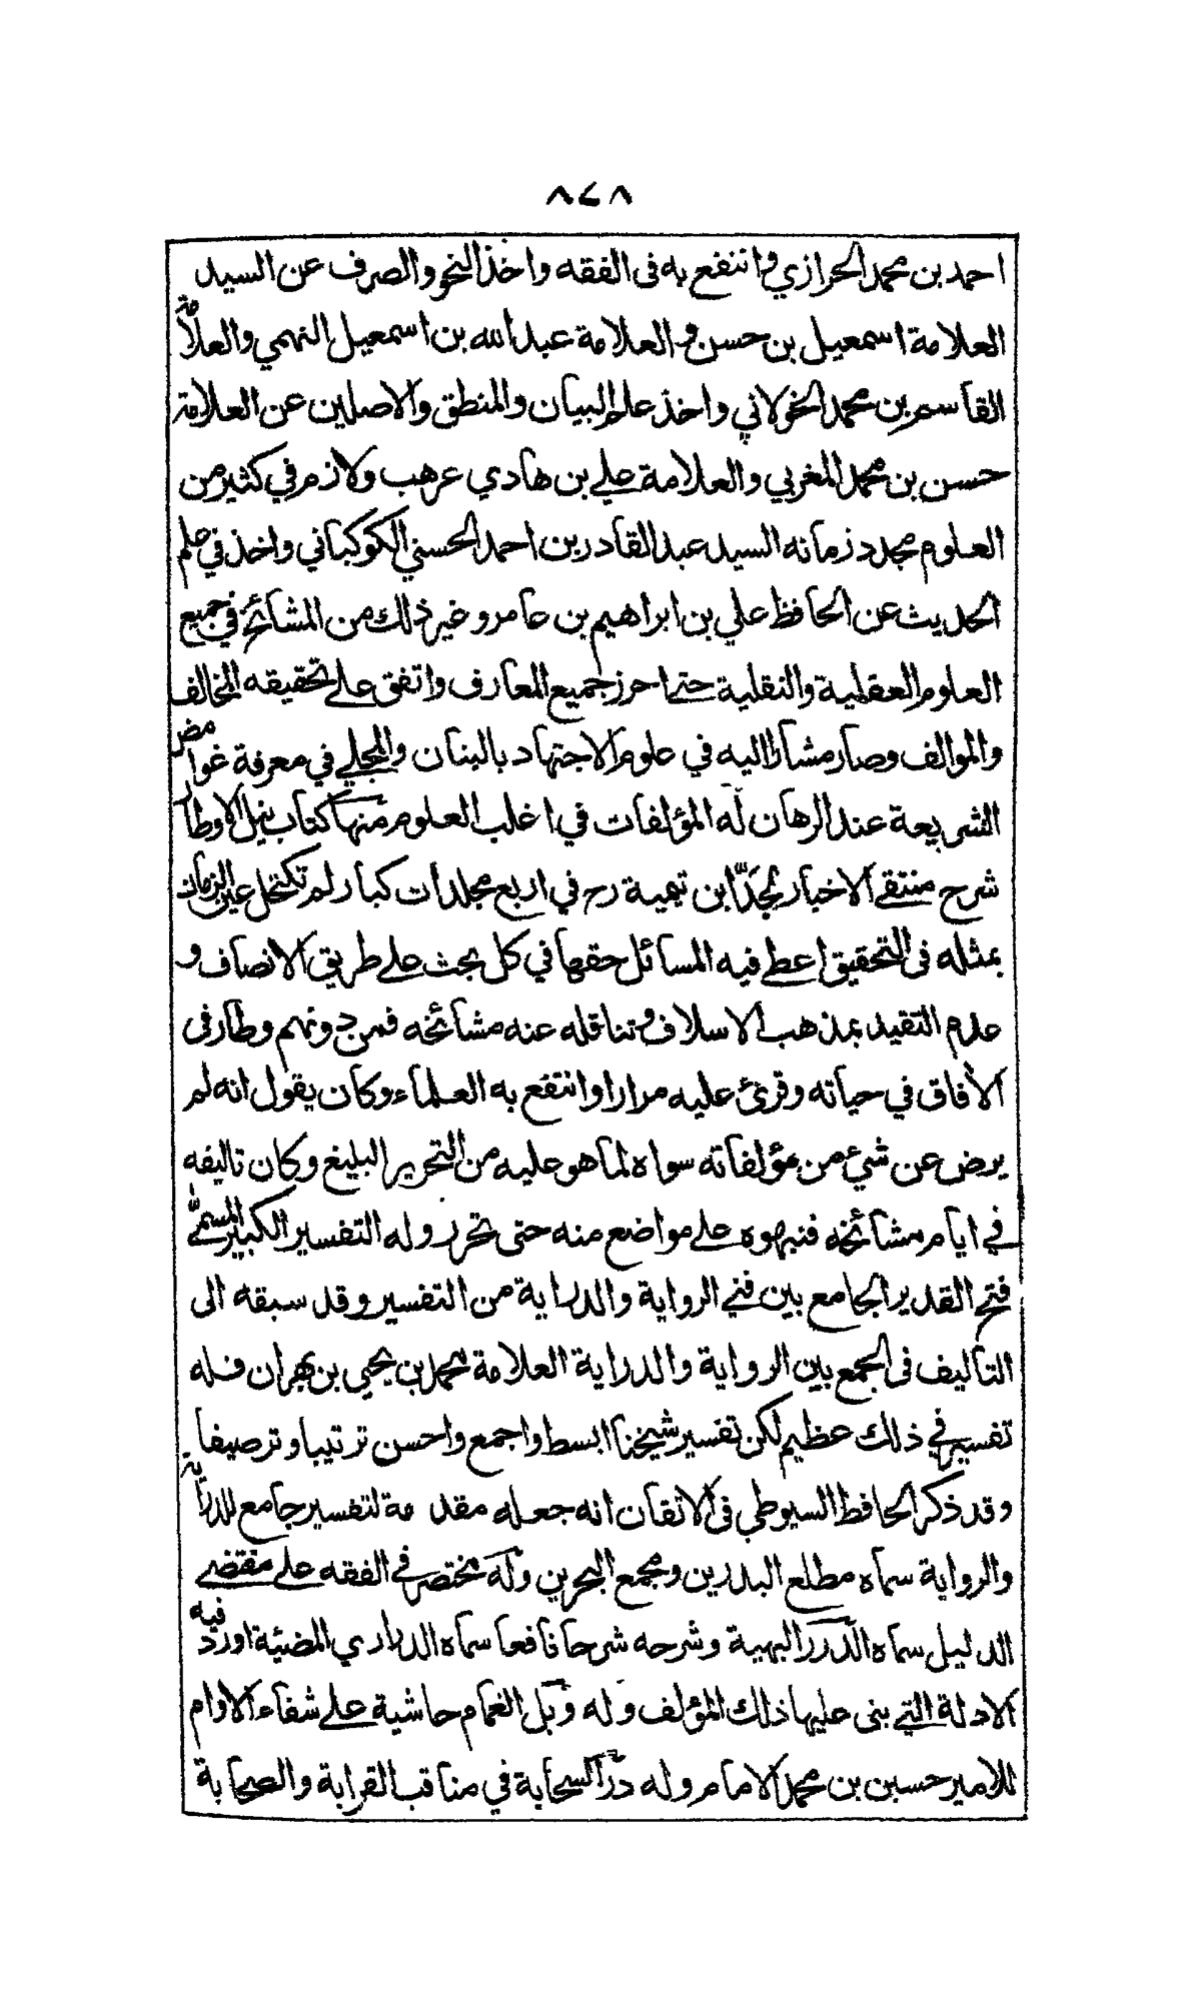 ٨٤٨
احمد بن محمد الحرازي وانتفع به فى الفقه واخذ النحو والصرف عن السيد
العلامة اسمعيل بن حسن و العلامة عبد الله بن اسمعيل النهمي والعلامة
القاسم بن محمد الخولاني واخذ علم البيان والمنطق والاصلين عن العلامة
حسن بن محمد المغربي والعلامة علے بن هادي عرهب ولازم في كثير من
العلوم مجدد زمانه السيد عبد القادر بن احمد الحسني الكوكباني واخذ في علم
الحديث عن الحافظ علي بن ابراهيم بن عامر وغير ذلك من المشائخ في جميع
العلوم العقلية والنقلية حتے احرز جميع المعارف واتفق علے تحقيقه المخالف
والموالف وصار مشارا اليه في علوم الاجتهاد بالبنان والمجلے في معرفة غوامض
الشريعة عند الرهان له المؤلفات في اغلب العلوم منها كتاب نيل الاوطار
شرح منتقے الاخبار لجد ابن تيمية رح في اربع مجلدات كبار لم تكتحل عين الزمان
بمثله فى التحقيق اعطے فيه المسائل حقها في كل بحث علے طريق الانصاف و
عدم التقيد بمذهب الاسلاف وتناقله عنه مشائخه فمن دونهم وطار فى
الآفاق في حياته وقرئ عليه مرارا وانتفع به العلماء وكان يقول انه لم
يرض عن شيء من مؤلفاته سواه لما هو عليه من التحرير البليغ وكان تاليفه
في ايام مشائخه فنبهوه علے مواضع منه حتى تحرر وله التفسير الكبير المسمے
فتح القدير الجامع بين فني الرواية والدراية من التفسير وقد سبقه الى
التأليف فى الجمع بين الرواية والدراية العلامة محمد بن يحيي بن بهران فله
تفسير في ذلك عظيم لكن تفسير شيخنا ابسط واجمع واحسن ترتيبا وترصيفا
وقد ذكر الحافظ السيوطي فى الاتقان انه جعله مقدمة لتفسير جامع للدراية
والرواية سماه مطلع البدرين ومجمع البحرين وله مختصر في الفقه علے مقتضے
الدليل سماه الدرر البهية وشرحه شرحا نافعا سماه الدراري المضيئة اورد فيه
الادلة التي بنى عليها ذلك المؤلف وله وبل الغمام حاشية علے شفاء الاوام
للامير حسين بن محمد الامام وله در السحابة في مناقب القرابة والصحابة